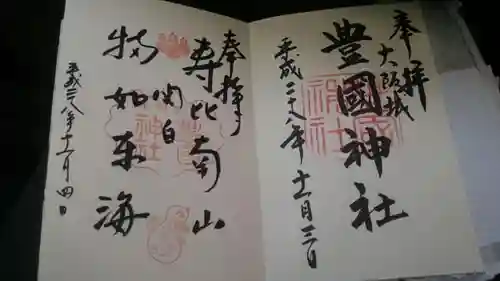 奉拝
大阪城
豊國神社
平成二十八年十二月三日
奉拝
寿比南山
関白
福如東海
平成二八年十一月四日